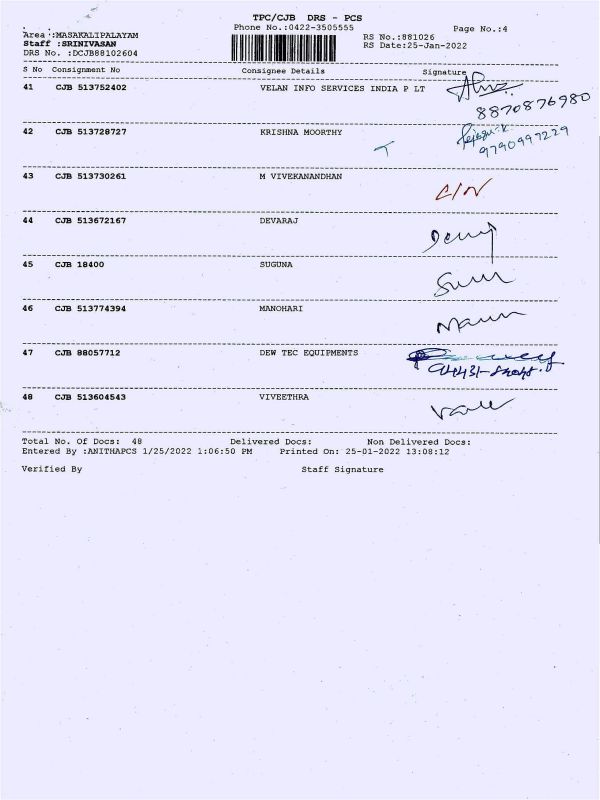 TPC/CJB DRS - PCS
Phone No.:0422-3505555
Page No.:4
Area :MASAKALIPALAYAM
RS No.:881026
Staff :SRINIVASAN
RS Date:25-Jan-2022
DRS No. :DCJB88102604
S No Consignment No Consignee Details Signature
41 CJB 513752402 VELAN INFO SERVICES INDIA P LT
8870876980
42 CJB 513728727 KRISHNA MOORTHY
9790997229
43 CJB 513730261 M VIVEKANANDHAN
44 CJB 513672167 DEVARAJ
45 CJB 18400 SUGUNA
46 CJB 513774394 MANOHARI
47 CJB 88057712 DEW TEC EQUIPMENTS
48 CJB 513604543 VIVEETHRA
Total No. Of Docs: 48 Delivered Docs: Non Delivered Docs:
Entered By :ANITHAPCS 1/25/2022 1:06:50 PM Printed On: 25-01-2022 13:08:12
Verified By Staff Signature